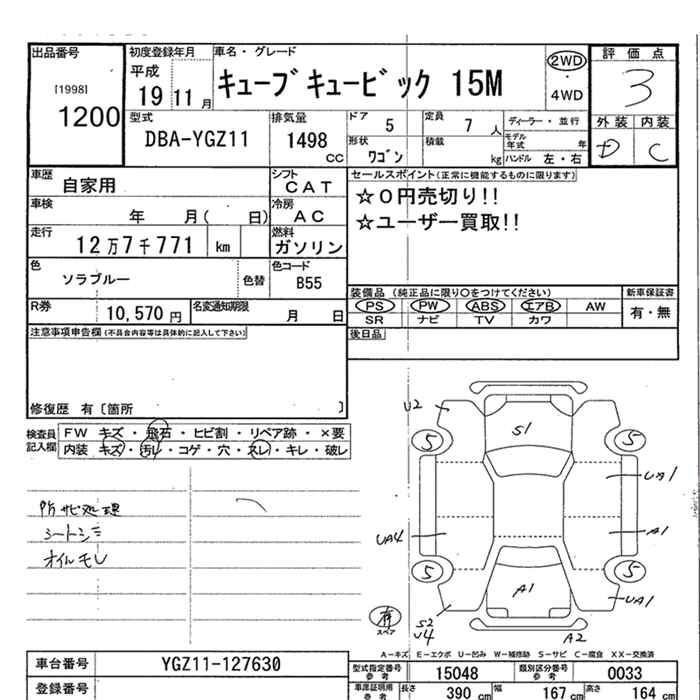 出品番号 初度登録年月 車名・グレード 評価点
[1998] 平成 キューブキュービック 15M 2WD 3
1200 19 11 月 ・ 4WD
型式 排気量 ドア 5 定員 7 人 ディーラー・並行 外装 内装
DBA-YGZ11 1498 cc 形状 ワゴン 積載 kg モデル年式 年 D C
ハンドル 左・右
車歴 自家用 シフト CAT セールスポイント(正常に機能するものに限ります)
車検 年 月( 日) 冷房 AC ☆0円売切り!!
走行 12万7千771 km 燃料 ガソリン ☆ユーザー買取!!
色 ソラブルー 色替 色コード B55
装備品 (純正品に限り○をつけてください) 新車保証書
R券 10,570 円 名変通知期限 月 日 PS PW ABS エアB AW 有・無
SR ナビ TV カワ
注意事項申告欄(不具合内容等は具体的に記入して下さい) 後日品
修復歴 有〔箇所 〕
検査員記入欄 FW キズ・飛石・ヒビ割・リペア跡・×要
内装 キズ・汚レ・コゲ・穴・スレ・キレ・破レ
防サビ処理
シートシミ
オイルモレ
U2
S1
5 5
UA1
UA4 A1
5 5
A1
UA1
有
スペア
S2
U4
A2
A-キズ E-エクボ U-凹み W-補修跡 S-サビ C-腐食 XX-交換済
車台番号 YGZ11-127630 型式指定番号参考 15048 類別区分番号参考 0033
登録番号 車庫証明用参考 長さ 390 cm 幅 167 cm 高さ 164 cm